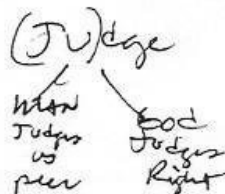 (JU)dge
MAN
Judges
us
peer
GOD
Judges
Right